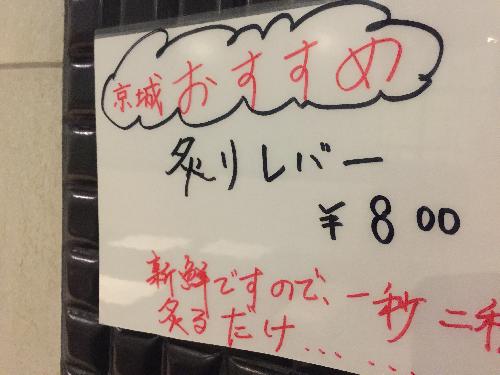 京城おすすめ
炙りレバー
¥800
新鮮ですので、一秒二秒
炙るだけ......